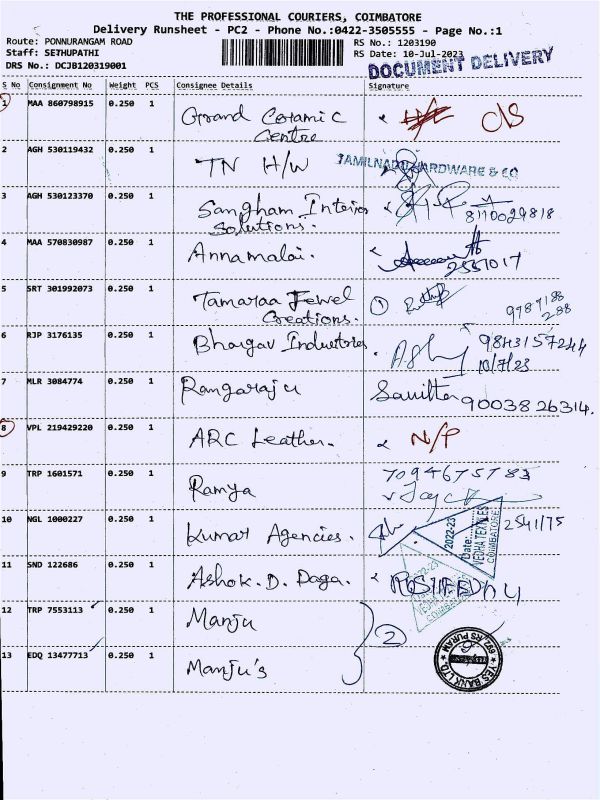 THE PROFESSIONAL COURIERS, COIMBATORE
Delivery Runsheet - PC2 - Phone No.:0422-3505555 - Page No.:1
Route: PONNURANGAM ROAD
Staff: SETHUPATHI
DRS No.: DCJB120319001
RS No.: 1203190
RS Date: 10-Jul-2023
DOCUMENT DELIVERY
S No Consignment No Weight PCS Consignee Details Signature
1 MAA 860798915 0.250 1 Grand Ceramic
Centre
2 AGH 530119432 0.250 1 TN H/W TAMILNADU HARDWARE & CO
3 AGH 530123370 0.250 1 Sangham Interior
Solutions. 8110029818
4 MAA 570830987 0.250 1 Annamalai. 2551017
5 SRT 301992073 0.250 1 Tamaraa Jewel
Creations. 1
6 RJP 3176135 0.250 1 Bhargav Industries. 9843157244
10/7/23
7 MLR 3084774 0.250 1 Rangaraju 9003826314.
8 VPL 219429220 0.250 1 ARC Leather. N/P
9 TRP 1601571 0.250 1 Ramya 7094675783
10 NGL 1000227 0.250 1 Kumar Agencies. 2541175
2022-23
Date:
VEDHA TEXTILES
COIMBATORE
11 SND 122686 0.250 1 Ashok. D. Daga.
2022-23
VEDHA TEXTILES
COIMBATORE
12 TRP 7553113 0.250 1 Manju 2
13 EDQ 13477713 0.250 1 Manju's
YES BANK LTD. 692, RS PURAM